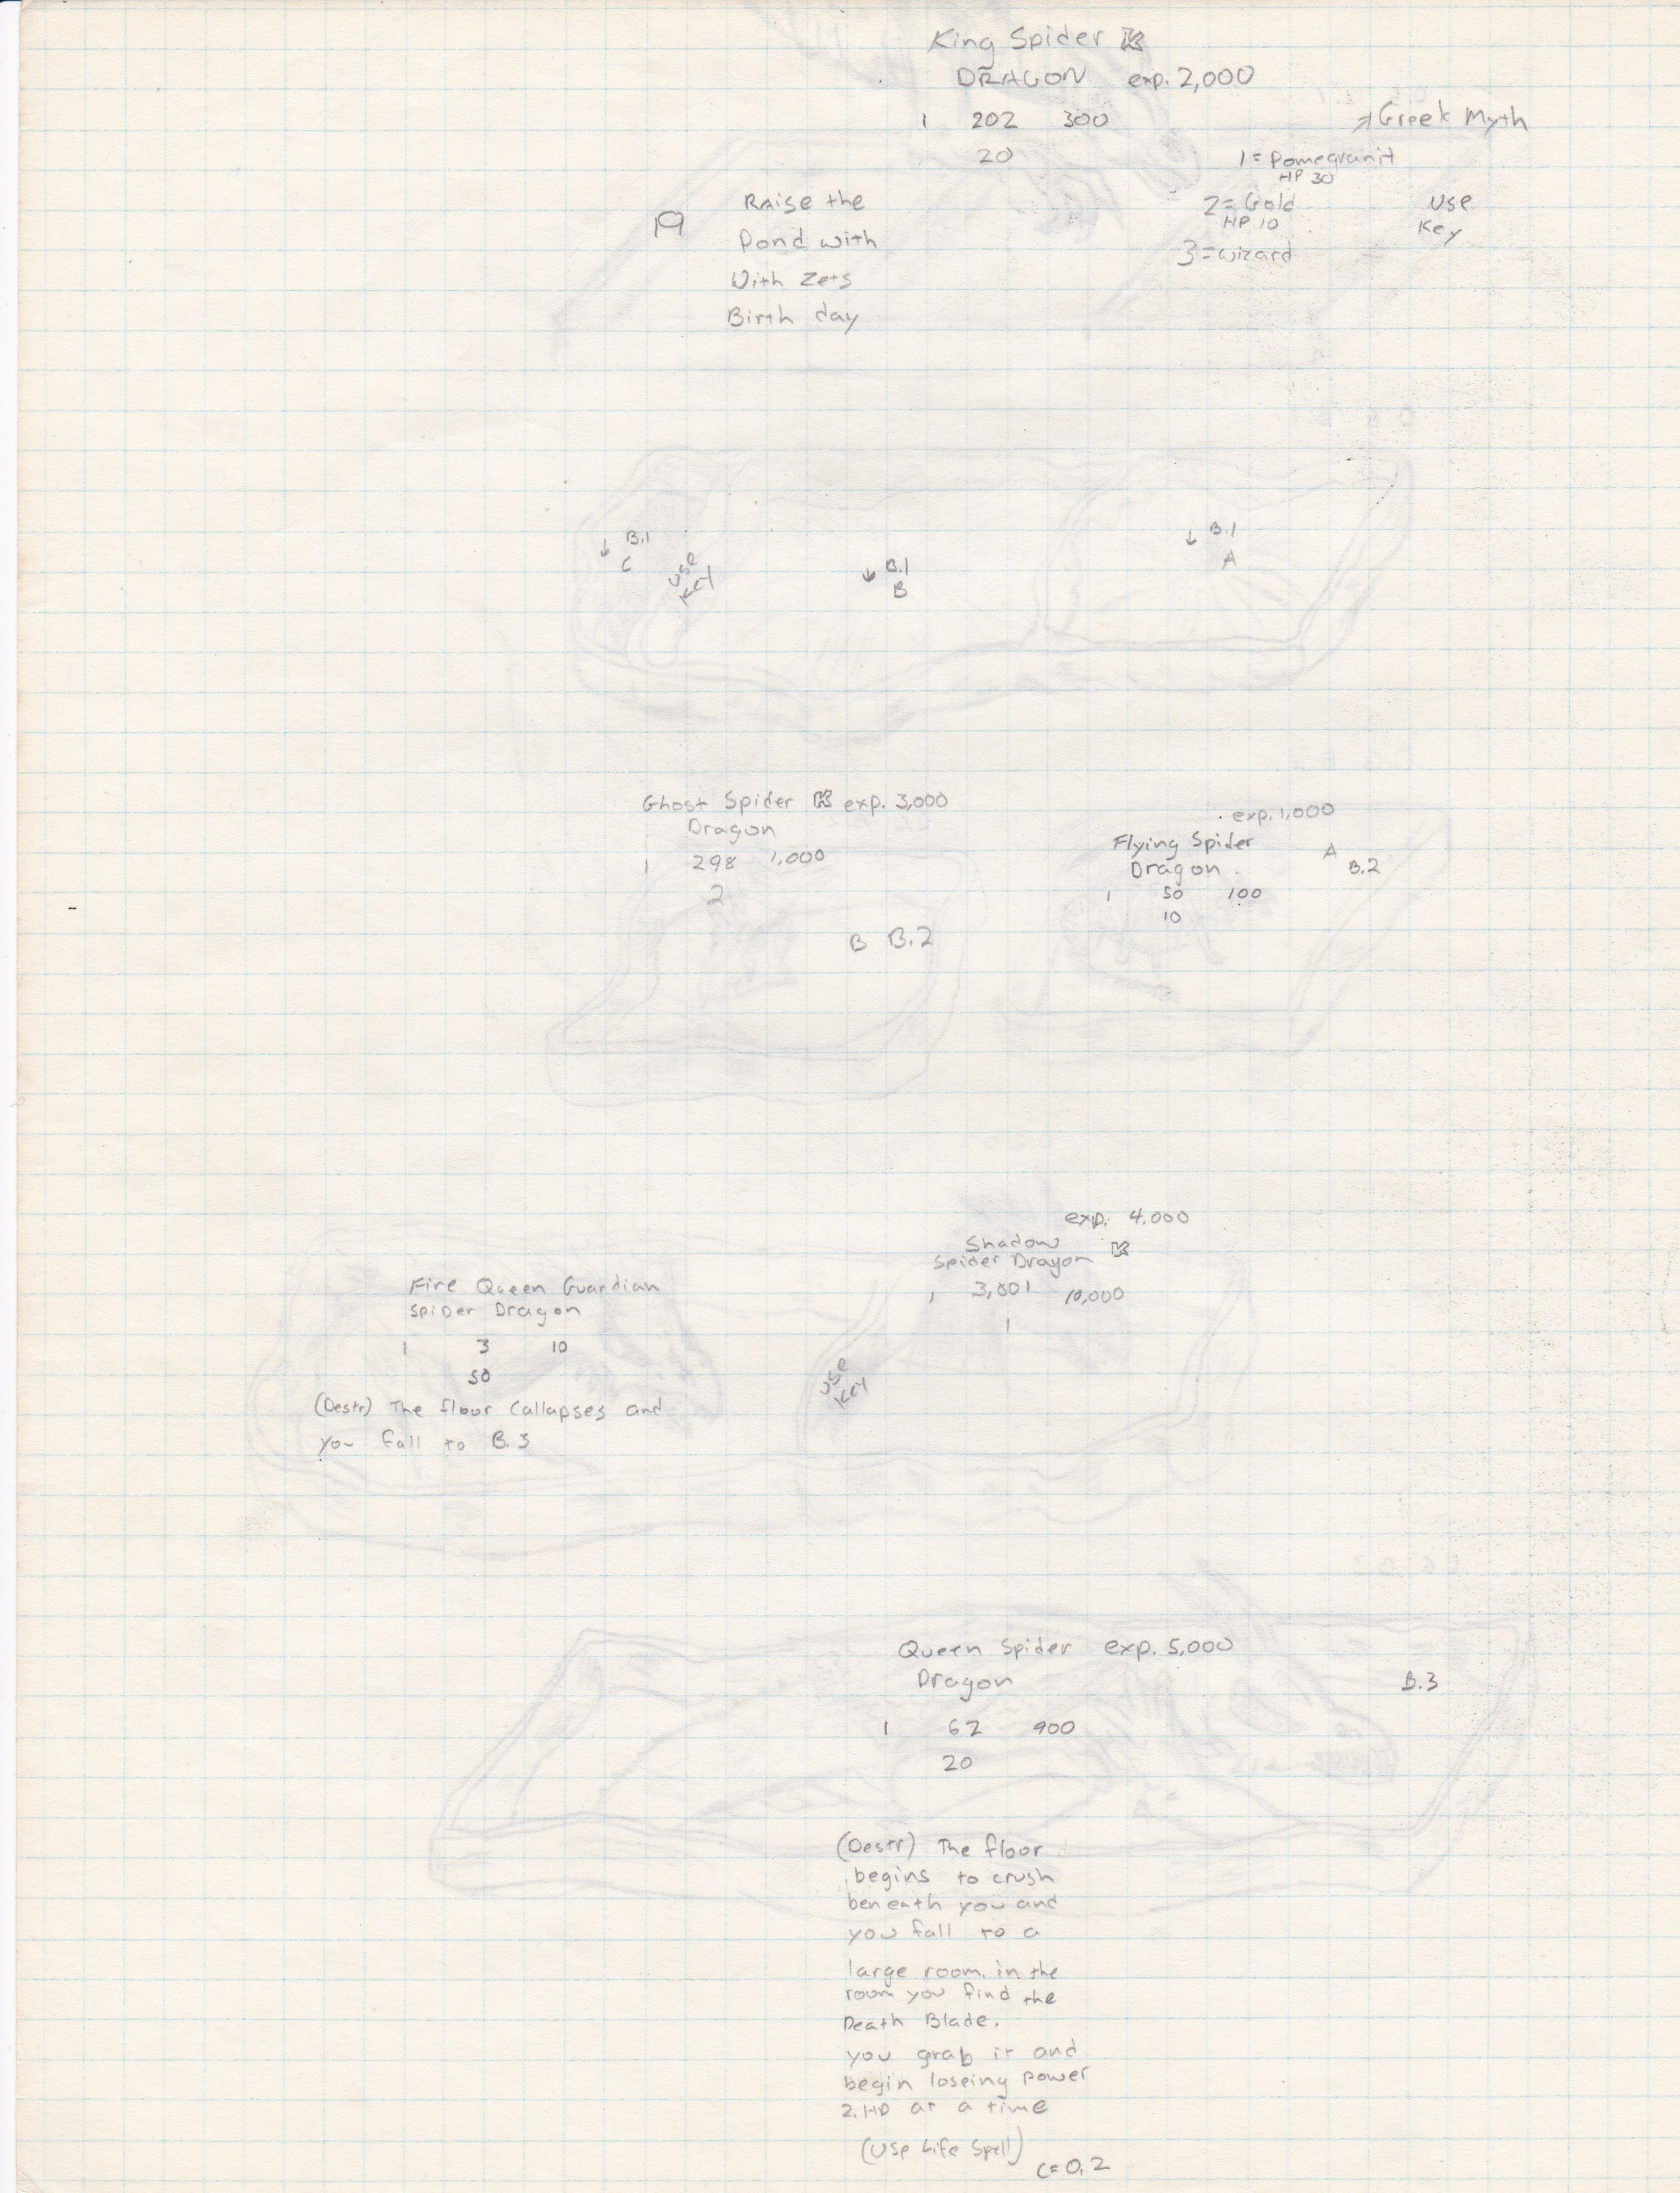 King Spider K
DRAGON exp. 2,000
1 202 300
20
Greek Myth
1 = Pomegranit
HP 30
2 = Gold
HP 10
3 = wizard
Use
Key
19
Raise the
Pond with
With Zets
Birth day
↓ B.1
C
Use
Key
↓ B.1
B
↓ B.1
A
Ghost Spider K exp. 3,000
Dragon
1 298 1,000
2
B B.2
exp. 1,000
Flying Spider
Dragon
A
B.2
1 50 100
10
exp. 4,000
Shadow K
Spider Dragon
1 3,001 10,000
1
Use
Key
Fire Queen Guardian
Spider Dragon
1 3 10
50
(Destr) The floor Callapses and
you fall to B.3
Queen Spider exp. 5,000
Dragon
B.3
1 62 900
20
(Destr) The floor
begins to crush
beneath you and
you fall to a
large room. in the
room you find the
Death Blade.
you grab it and
begin loseing power
2. HP at a time
(Use Life Spell)
C=0,2